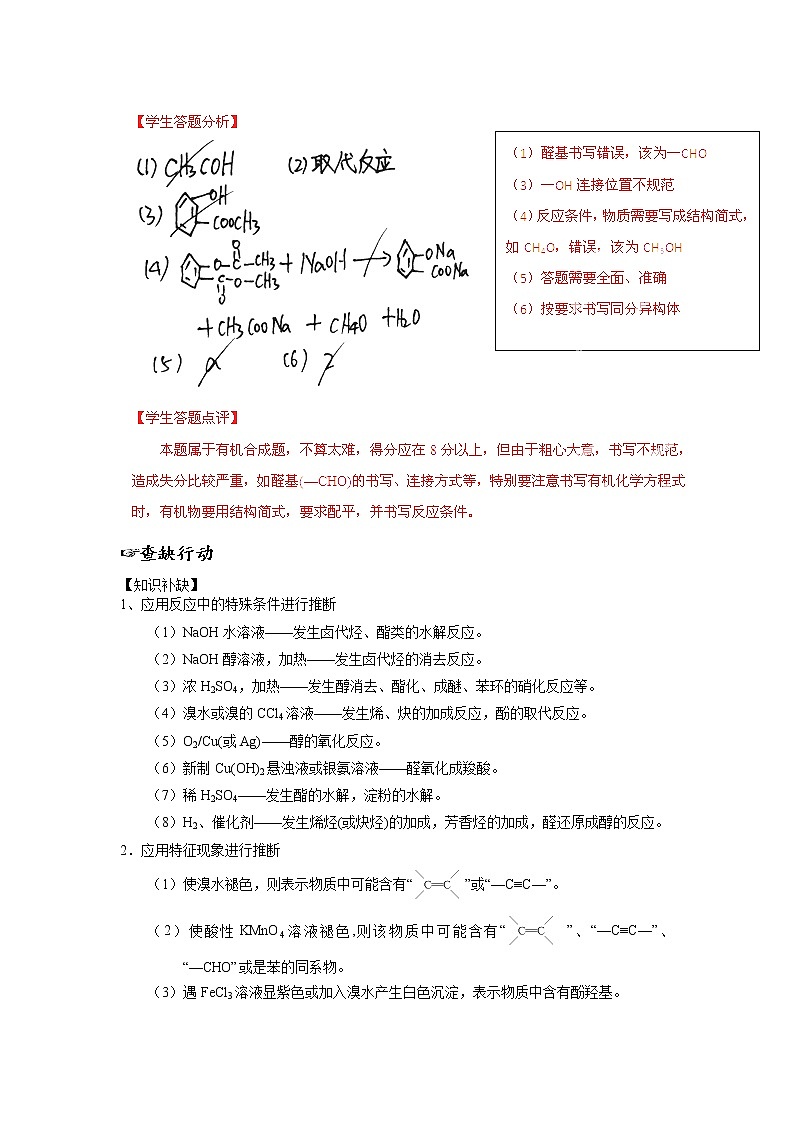 【学生答题分析】
(1) CH3COH (2) 取代反应
(3) OH
COOCH3
(4) O
O—C—CH3 + NaOH → ONa
C—O—CH3 COONa
O
+ CH3COONa + CH4O + H2O
(5) a (6) 2
（1）醛基书写错误，该为—CHO
（3）—OH 连接位置不规范
（4）反应条件，物质需要写成结构简式，
如 CH4O，错误，该为 CH3OH
（5）答题需要全面、准确
（6）按要求书写同分异构体
【学生答题点评】
本题属于有机合成题，不算太难，得分应在 8 分以上，但由于粗心大意，书写不规范，
造成失分比较严重，如醛基(—CHO)的书写、连接方式等，特别要注意书写有机化学方程式
时，有机物要用结构简式，要求配平，并书写反应条件。
☞查缺行动
【知识补缺】
1、应用反应中的特殊条件进行推断
（1）NaOH 水溶液——发生卤代烃、酯类的水解反应。
（2）NaOH 醇溶液，加热——发生卤代烃的消去反应。
（3）浓 H2SO4，加热——发生醇消去、酯化、成醚、苯环的硝化反应等。
（4）溴水或溴的 CCl4 溶液——发生烯、炔的加成反应，酚的取代反应。
（5）O2/Cu(或 Ag)——醇的氧化反应。
（6）新制 Cu(OH)2 悬浊液或银氨溶液——醛氧化成羧酸。
（7）稀 H2SO4——发生酯的水解，淀粉的水解。
（8）H2、催化剂——发生烯烃(或炔烃)的加成，芳香烃的加成，醛还原成醇的反应。
2．应用特征现象进行推断
（1）使溴水褪色，则表示物质中可能含有“C=C”或“—C≡C—”。
（2）使酸性 KMnO4 溶液褪色,则该物质中可能含有“C=C”、“—C≡C—”、
“—CHO”或是苯的同系物。
（3）遇 FeCl3 溶液显紫色或加入溴水产生白色沉淀，表示物质中含有酚羟基。